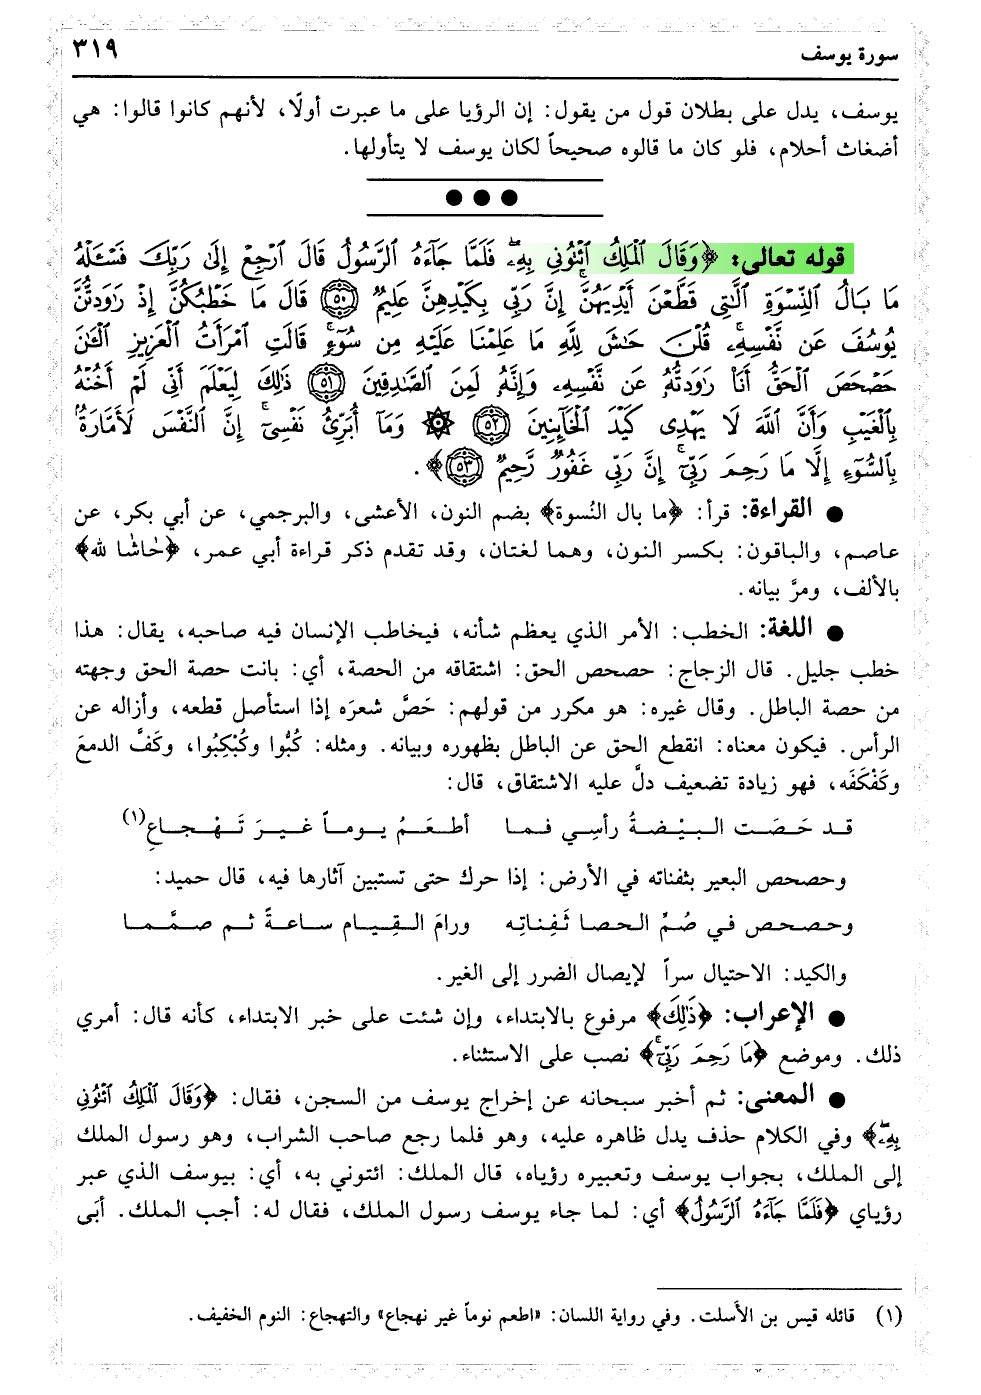 سورة يوسف ٣١٩
يوسف، يدل على بطلان قول من يقول: إن الرؤيا على ما عبرت أولًا، لأنهم كانوا قالوا: هي
أضغاث أحلام، فلو كان ما قالوه صحيحاً لكان يوسف لا يتأولها.
قوله تعالى: ﴿وَقَالَ ٱلْمَلِكُ ٱئْتُونِي بِهِۦۖ فَلَمَّا جَآءَهُ ٱلرَّسُولُ قَالَ ٱرْجِعْ إِلَىٰ رَبِّكَ فَسْـَٔلْهُ
مَا بَالُ ٱلنِّسْوَةِ ٱلَّٰتِى قَطَّعْنَ أَيْدِيَهُنَّۚ إِنَّ رَبِّى بِكَيْدِهِنَّ عَلِيمٌ ٥٠ قَالَ مَا خَطْبُكُنَّ إِذْ رَٰوَدتُّنَّ
يُوسُفَ عَن نَّفْسِهِۦۚ قُلْنَ حَٰشَ لِلَّهِ مَا عَلِمْنَا عَلَيْهِ مِن سُوٓءٍۚ قَالَتِ ٱمْرَأَتُ ٱلْعَزِيزِ ٱلْـَٰٔنَ
حَصْحَصَ ٱلْحَقُّ أَنَا۠ رَٰوَدتُّهُۥ عَن نَّفْسِهِۦ وَإِنَّهُۥ لَمِنَ ٱلصَّٰدِقِينَ ٥١ ذَٰلِكَ لِيَعْلَمَ أَنِّى لَمْ أَخُنْهُ
بِٱلْغَيْبِ وَأَنَّ ٱللَّهَ لَا يَهْدِى كَيْدَ ٱلْخَآئِنِينَ ٥٢ ۞ وَمَآ أُبَرِّئُ نَفْسِىٓۚ إِنَّ ٱلنَّفْسَ لَأَمَّارَةٌۢ
بِٱلسُّوٓءِ إِلَّا مَا رَحِمَ رَبِّىٓۚ إِنَّ رَبِّى غَفُورٌ رَّحِيمٌ ٥٣﴾.
● القراءة: قرأ: ﴿ما بال النُسوة﴾ بضم النون، الأعشى، والبرجمي، عن أبي بكر، عن
عاصم، والباقون: بكسر النون، وهما لغتان، وقد تقدم ذكر قراءة أبي عمر، ﴿حٰاشٰا لله﴾
بالألف، ومرَّ بيانه.
● اللغة: الخطب: الأمر الذي يعظم شأنه، فيخاطب الإنسان فيه صاحبه، يقال: هذا
خطب جليل. قال الزجاج: حصحص الحق: اشتقاقه من الحصة، أي: بانت حصة الحق وجهته
من حصة الباطل. وقال غيره: هو مكرر من قولهم: حَصَّ شعرَه إذا استأصل قطعه، وأزاله عن
الرأس. فيكون معناه: انقطع الحق عن الباطل بظهوره وبيانه. ومثله: كُبُّوا وكُبْكِبُوا، وكَفَّ الدمعَ
وكَفْكَفَه، فهو زيادة تضعيف دلَّ عليه الاشتقاق، قال:
قد حَصَت البيْضةُ رأسِي فما أطعَمُ يوماً غيرَ تَهْجاعِ(١)
وحصحص البعير بثفناته في الأرض: إذا حرك حتى تستبين آثارها فيه، قال حميد:
وحصحص في صُمِّ الحصا ثَفِناتِه ورامَ القِيام ساعةً ثم صمَّما
والكيد: الاحتيال سراً لإيصال الضرر إلى الغير.
● الإعراب: ﴿ذَٰلِكَ﴾ مرفوع بالابتداء، وإن شئت على خبر الابتداء، كأنه قال: أمري
ذلك. وموضع ﴿مَا رَحِمَ رَبِّىٓۚ﴾ نصب على الاستثناء.
● المعنى: ثم أخبر سبحانه عن إخراج يوسف من السجن، فقال: ﴿وَقَالَ ٱلْمَلِكُ ٱئْتُونِي
بِهِۦۖ﴾ وفي الكلام حذف يدل ظاهره عليه، وهو فلما رجع صاحب الشراب، وهو رسول الملك
إلى الملك، بجواب يوسف وتعبيره رؤياه، قال الملك: ائتوني به، أي: بيوسف الذي عبر
رؤياي ﴿فَلَمَّا جَآءَهُ ٱلرَّسُولُ﴾ أي: لما جاء يوسف رسول الملك، فقال له: أجب الملك. أبَى
(١) قائله قيس بن الأسلت. وفي رواية اللسان: «اطعم نوماً غير نهجاع» والتهجاع: النوم الخفيف.